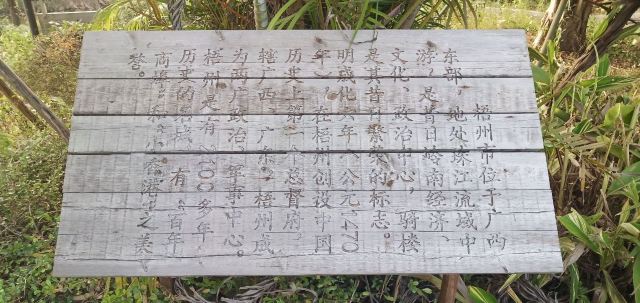 梧州市位于广西
东部,地处珠江流域中
游,是昔日岭南经济、
文化、政治中心,骑楼
是其昔日繁荣的标志。
明成化六年(公元1470
年),在梧州创设中国
历史上第一个总督府,
辖广西、广东。梧州成
为两广政治、军事中心。
梧州是有2100多年
历史的古城,有“百年
商埠”和“小香港”之美
誉。